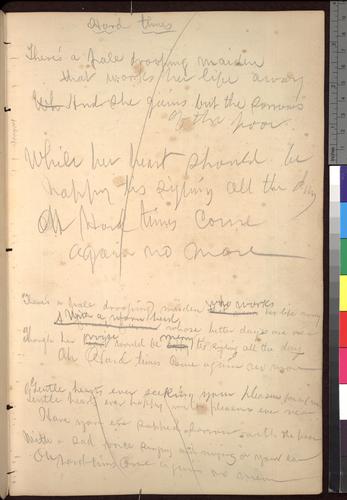 Hard times
There's a pale drooping maiden
that works her life away
And she gains but the sorrows
of the poor
While her heart should be
happy tis sighing all the day
Oh Hard times Come
again no more
There's a pale drooping maiden who works her life away
With a worn heart whose better days are
Though her voice would be merry tis sighing all the day
Oh Hard times Come again no more
Gentle hearts ever seeking your pleasures
Gentle hearts ever happy with pleasures ever near
Have you ere supped sorrow with the poor
With a sad voice singing in your ear
Oh hard times Come again no more